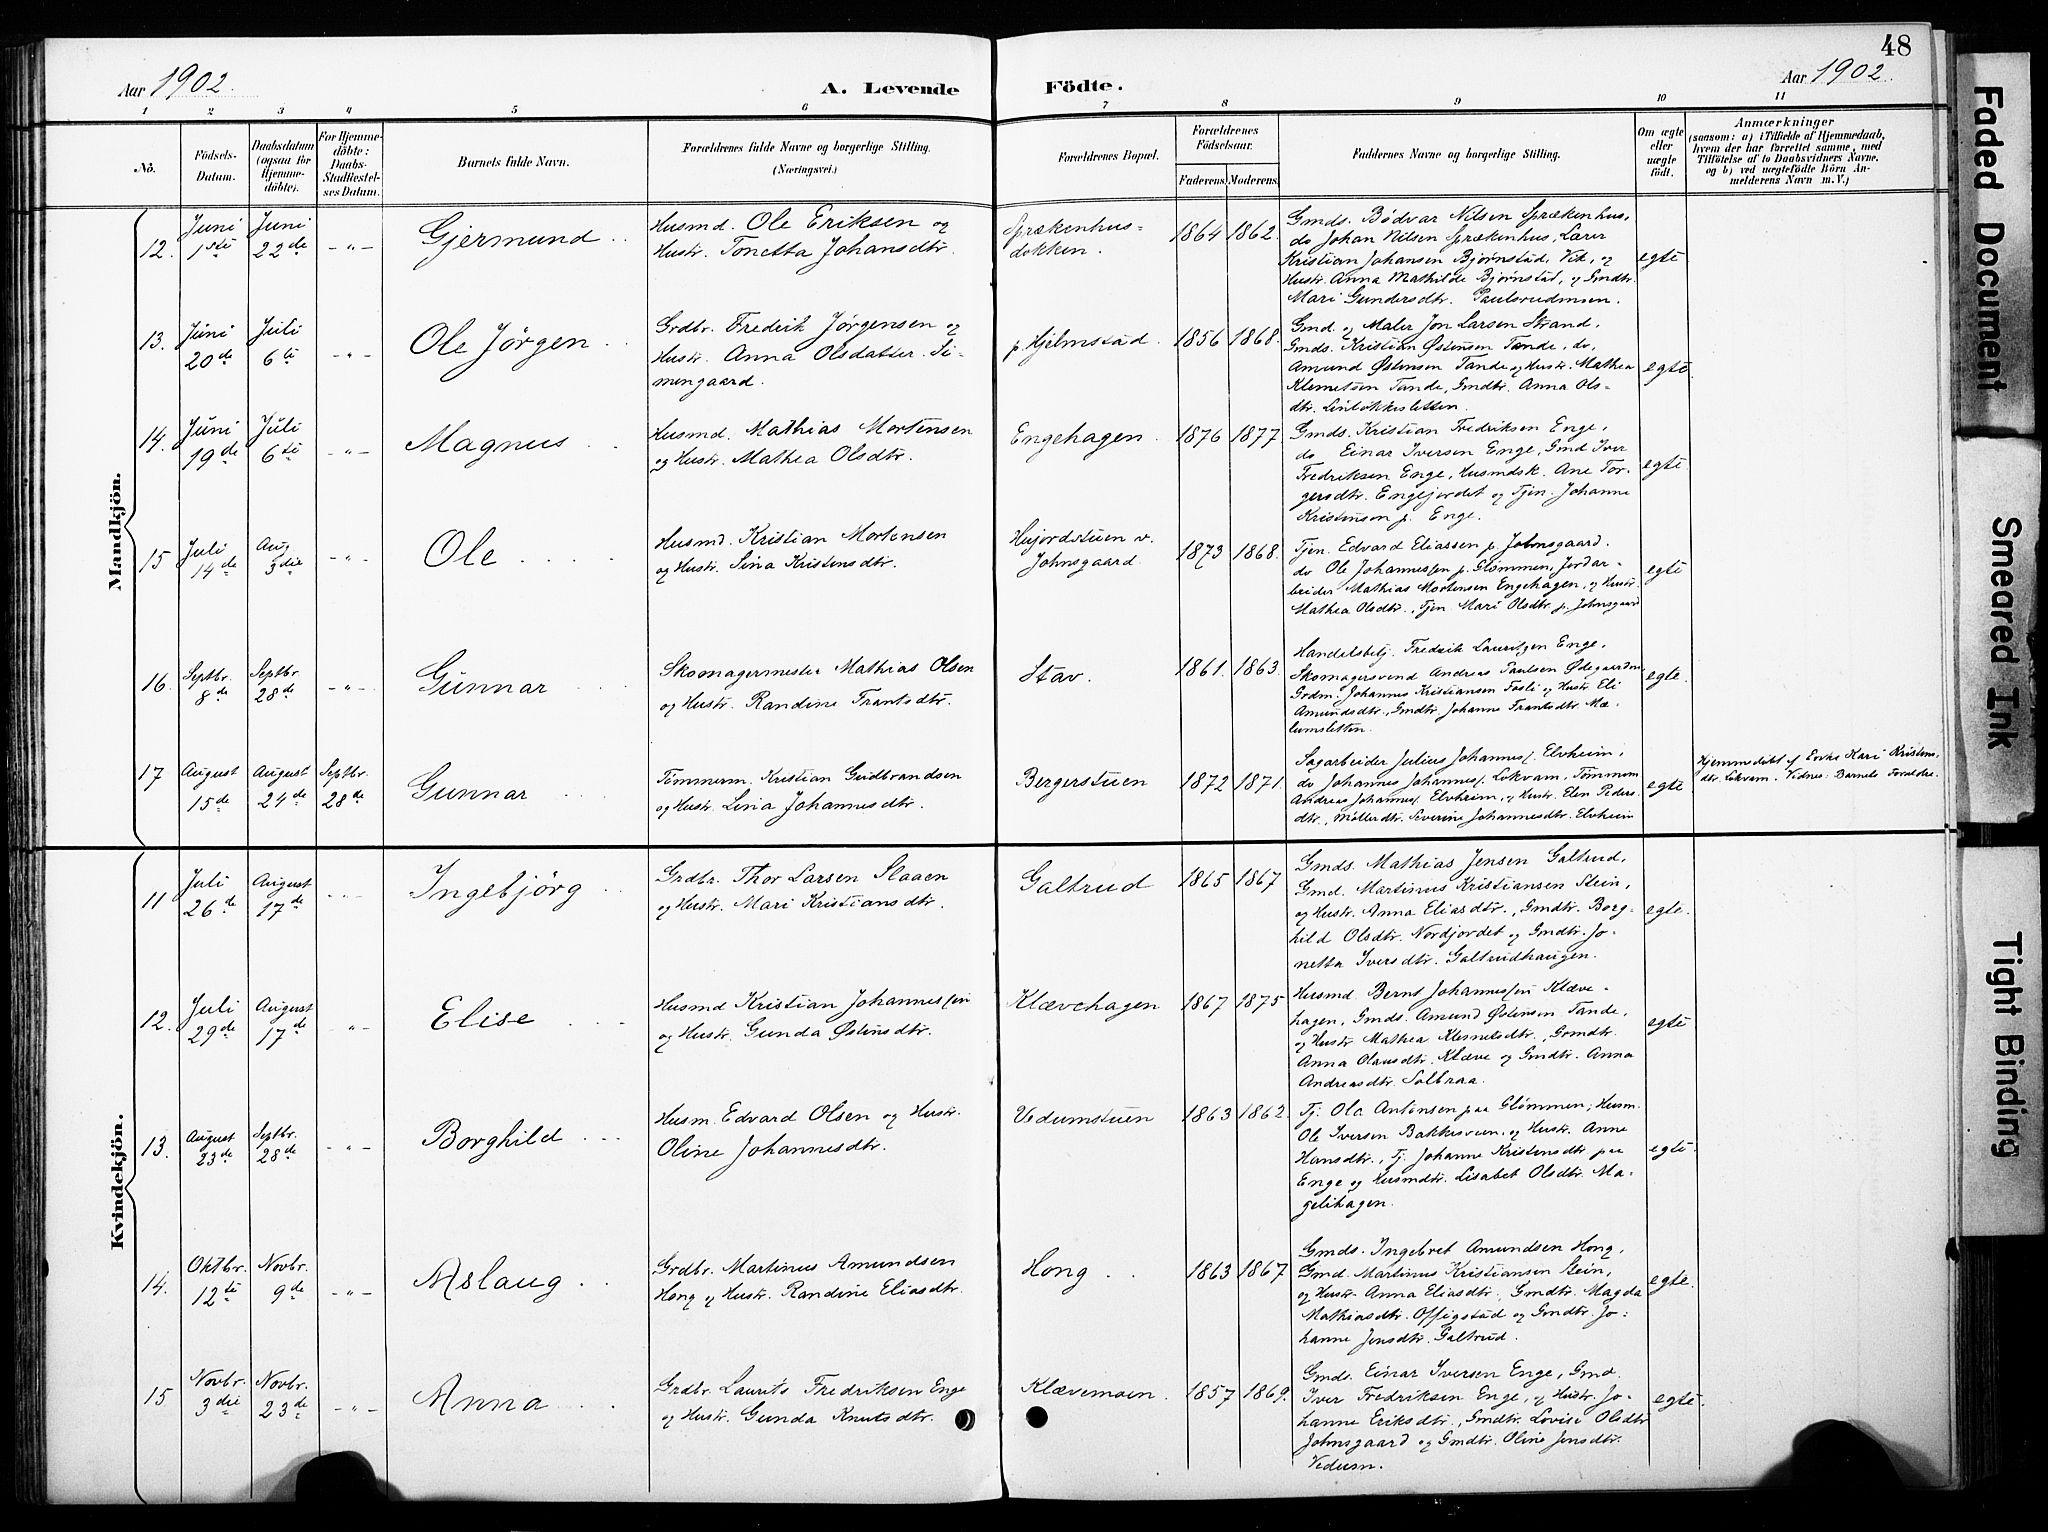 48
Aar 1902.
A. Levende Födte.
Aar 1902.
1 2 3 4 5 6 7 8 9 10 11
No.
Födsels-
Datum.
Daabsdatum
(ogsaa for
Hjemme-
döbte).
For Hjemme-
döbte:
Daabs-
Stadfæstel-
ses Datum.
Barnets fulde Navn.
Forældrenes fulde Navne og borgerlige Stilling.
(Næringsvei.)
Forældrenes Bopæl.
Forældrenes
Födselsaar.
Faderens. Moderens.
Faddernes Navne og borgerlige Stilling.
Om ægte
eller
uægte
födt.
Anmærkninger
(saasom: a) i Tilfælde af Hjemmedaab,
hvem der har forrettet samme, med
Tilföielse af to Daabsvidners Navne.
og b) ved uægtefödte Börn An-
melderens Navn m. V.)
Mandkjön.
12. Juni 1ste Juni 22de -"- Gjermund
Husmd. Ole Eriksen og
Hustr. Tonetta Johansdtr.
Sprækenhus-
dokken.
1864 1862.
Gmds. Bødvar Nilsen Sprækenhus,
do Johan Nilsen Sprækenhus, Lærer
Kristian Johansen Bjørnstad, Vik, og
Hustr. Anna Mathilde Bjørnstad, og Gmdtr.
Mari Gundersdtr. Paulsrudmoen.
egte
13. Juni 20de Juli 6te -"- Ole Jörgen
Grdbr. Fredrik Jörgensen og
Hustr. Anna Olsdatter Si-
mengaard.
p. Hjelmstad.
1856 1868.
Gmd. og Maler Jon Larsen Strand,
Gmds. Kristian Østensen Tande, do.
Amund Østensen Tande og Hustr. Mathea
Klemetsen Tande, Gmdtr. Anna Ols-
dtr. Linløkkesletten.
egte.
14. Juni 19de Juli 6te -"- Magnus
Husmd. Mathias Mortensen
og Hustr. Mathea Olsdtr.
Engehagen.
1876 1877.
Gmds. Kristian Fredriksen Enge,
do Einar Iversen Enge, Gmd Iver
Fredriksen Enge, Husmdsk. Ane Tor-
gersdtr. Engejordet og Tjen. Johanne
Kristensen p. Enge.
egte.
15 Juli 14de Aug 3die -"- Ole
Husmd. Kristian Mortensen
og Hustr. Sina Kristensdtr.
Hujordstuen v.
Johnsgaard.
1873 1868.
Tjen. Edvard Eliassen p. Johnsgaard.
do Ole Johannessen p. Glömmen, Jordar-
beider Mathias Mortensen Engehagen, og Hustr.
Mathea Olsdtr., Tjen. Mari Olsdtr. p. Johnsgaard
egte
16. Septbr. 8de Septbr. 28de -"- Gunnar
Skomagermester Mathias Olsen
og Hustr. Randine Frantsdtr.
Stav.
1861. 1863.
Handelsbetj. Fredrik Lauritzen Enge,
Skomagersvend Andreas Paulsen Ødegaarden
Grdm. Johannes Kristiansen Fosli og Hustr. Eli
Amundsdtr., Gmdtr. Johanne Frantsdtr. Mæ-
lumsletten.
egte.
17 August 15de August 24de Septbr. 28de Gunnar
Tömmerm. Kristian Gudbrandsen
og Hustr. Lina Johannesdtr.
Bergerstuen
1872 1871.
Sagarbeider Julius Johannes/. Elvheim,
do Johannes Johannes/. Løkvam, Tömmerm
Andreas Johannes/. Elvheim, og Hustr. Elen Peders-
dtr., Møllerdtr. Severine Johannesdtr. Elvheim
egte
Hjemmedöbt af Enke Kari Kristens-
dtr. Løkvam. Vidner: Barnets Forældre.
Kvindekjön.
11 Juli 26de August 17de -"- Ingebjörg
Grdbr. Thor Larsen Slaaen
og Hustr. Mari Kristiansdtr.
Galtrud
1865 1867
Gmds. Mathias Jensen Galtrud,
Gmd. Martinus Kristiansen Stein,
og Hustr. Anna Eliasdtr., Gmdtr. Borg-
hild Olsdtr. Nordjordet og Gmdtr. Jo-
netta Iversdtr. Galtrudhaugen.
egte.
12. Juli 29de August 17de -"- Elise
Husmd Kristian Johannessen
og Hustr. Gunda Østensdtr.
Klævehagen
1867 1875.
Husmd. Bernt Johannessen Klæve-
hagen, Gmds. Amund Østensen Tande,
og Hustr. Mathea Klemetsdtr., Gmdtr.
Anna Olausdtr. Klæve og Gmdtr. Anna
Andreasdtr. Solbraa.
egte
13. August 23de Septbr. 28de -"- Borghild
Husm. Edvard Olsen og Hustr.
Oline Johannesdtr.
Vedumstuen
1863 1862.
Tj. Ole Antonsen paa Glömmen, Husm.
Ole Iversen Bakkesveen, og Hustr. Anne
Hansdtr., Tj. Johanne Kristensdtr paa
Enge og Husmdtr. Lisabet Olsdtr. Ma-
gelihagen.
egte.
14. Oktbr. 12te Novbr. 9de -"- Aslaug
Grdbr. Martinus Amundsen
Hong og Hustr. Randine Eliasdtr.
Hong
1863 1867
Gmds. Ingebret Amundsen Hong,
Gmd. Martinus Kristiansen Stein,
og Hustr. Anna Eliasdtr. Gmdtr. Magda
Mathiasdtr. Offigstad og Gmdtr. Jo-
hanne Jensdtr. Galtrud.
egte.
15 Novbr. 3die Novbr. 23de -"- Anna
Grdbr. Laurits Fredriksen Enge
og Hustr. Gunda Knutsdtr.
Klævemoen.
1857 1869.
Gmds. Einar Iversen Enge, Gmd.
Iver Fredriksen Enge, og Hustr. Jo-
hanne Eriksdtr., Gmdtr. Lovise Olsdtr
Johnsgaard og Gmdtr. Oline Jensdtr.
Vedum.
egte.
Faded Document
Smeared Ink
Tight Binding